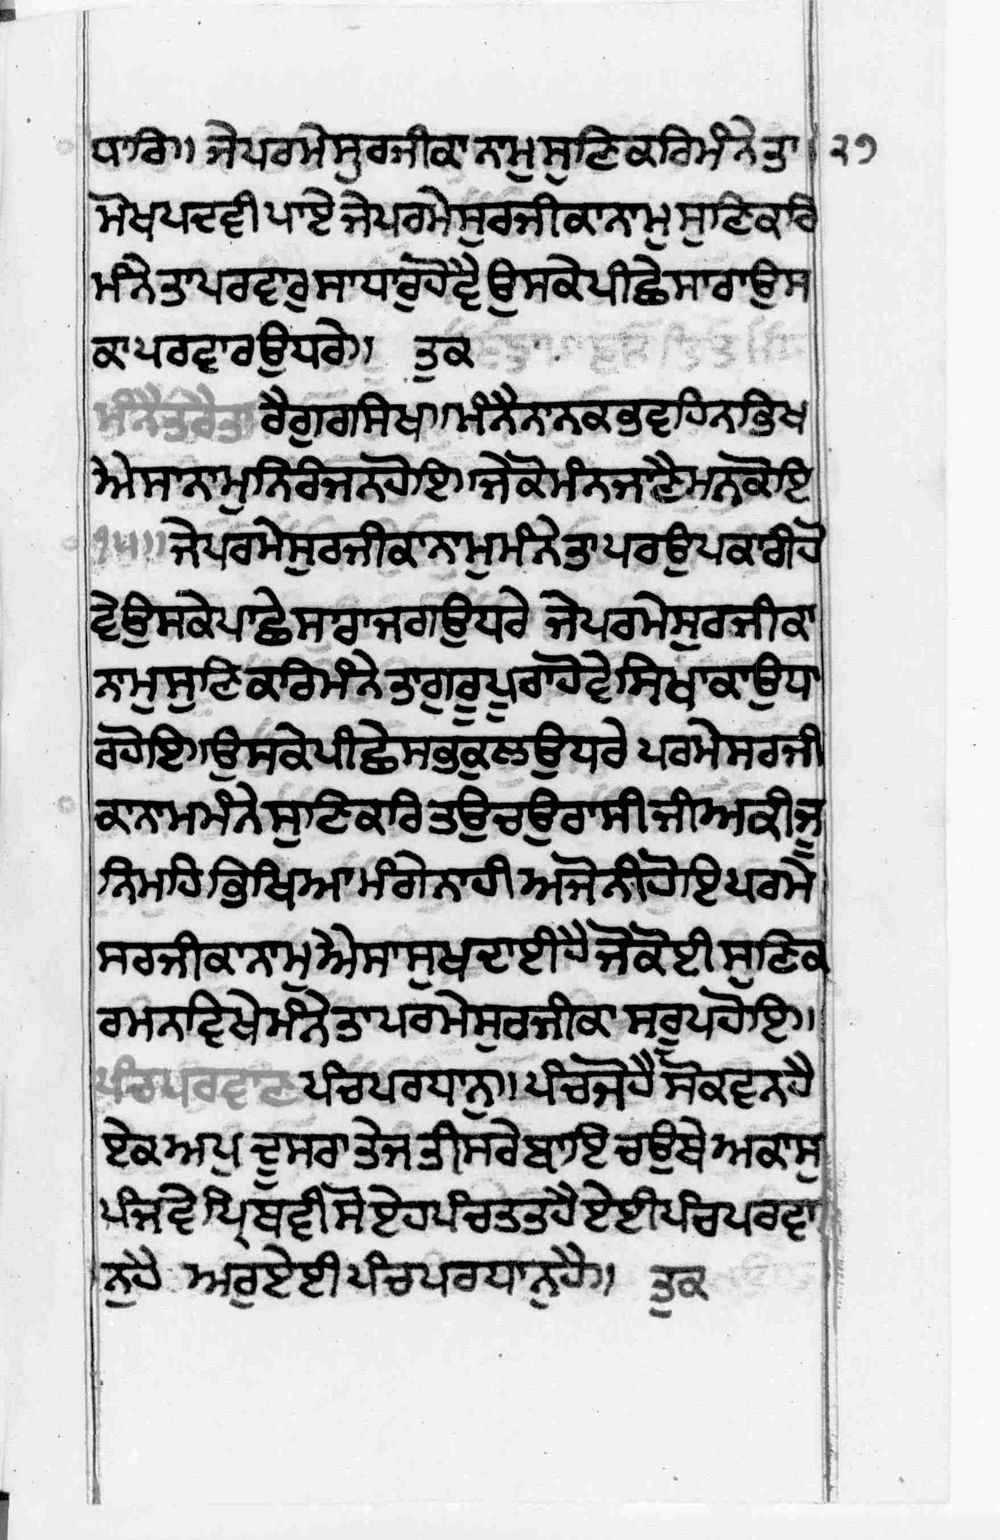 ਧਾਰਿ॥ ਜੇ ਪਰਮੇਸੁਰ ਜੀ ਕਾ ਨਾਮੁ ਸੁਣਿ ਕਰਿ ਮੰਨੇ ਤਾ ੨੭
ਮੋਖ ਪਦਵੀ ਪਾਏ ਜੇ ਪਰਮੇਸੁਰ ਜੀ ਕਾ ਨਾਮੁ ਸੁਣਿ ਕਰਿ
ਮੰਨੇ ਤਾ ਪਰਵਾਰੁ ਸਾਧਾਰੁ ਹੋਵੈ ਉਸ ਕੇ ਪੀਛੇ ਸਾਰਾ ਉਸ
ਕਾ ਪਰਵਾਰ ਉਧਰੇ॥ ਤੁਕ
ਮੰਨੈ ਤਰੈ ਤਾਰੈ ਗੁਰ ਸਿਖ॥ ਮੰਨੈ ਨਾਨਕ ਭਵਹਿ ਨ ਭਿਖ
ਐਸਾ ਨਾਮੁ ਨਿਰਿਜਨ ਹੋਇ॥ ਜੇ ਕੋ ਮੰਨ ਜਾਣੈ ਮਨ ਕੋਇ
੧੫॥ ਜੇ ਪਰਮੇਸੁਰ ਜੀ ਕਾ ਨਾਮੁ ਮੰਨੇ ਤਾ ਪਰਉਪਕਾਰੀ ਹੋ
ਵੇ ਉਸ ਕੇ ਪਾਛੇ ਸਾਰਾ ਜਗ ਉਧਰੇ ਜੇ ਪਰਮੇਸੁਰ ਜੀ ਕਾ
ਨਾਮੁ ਸੁਣਿ ਕਰਿ ਮੰਨੇ ਤਾ ਗੁਰੂ ਪੂਰਾ ਹੋਵੇ ਸਿਖਾ ਕਾ ਉਧਾ
ਰ ਹੋਇ॥ ਉਸ ਕੇ ਪੀਛੇ ਸਭ ਕੁਲ ਉਧਰੇ ਪਰਮੇਸਰ ਜੀ
ਕਾ ਨਾਮ ਮੰਨੇ ਸੁਣਿ ਕਰਿ ਤਉ ਚਉਰਾਸੀ ਜੀਅ ਕੀ ਜੂ
ਨਿ ਮਹਿ ਭਿਖਿਆ ਮੰਗੇ ਨਾਹੀ ਅਜੋਨੀ ਹੋਇ ਪਰਮੇ
ਸਰ ਜੀ ਕਾ ਨਾਮੁ ਐਸਾ ਸੁਖਦਾਈ ਹੈ ਜੋ ਕੋਈ ਸੁਣਿ ਕ
ਰ ਮਨ ਵਿਖੇ ਮੰਨੇ ਤਾ ਪਰਮੇਸੁਰ ਜੀ ਕਾ ਸਰੂਪ ਹੋਇ॥
ਪੰਚ ਪਰਵਾਣ ਪੰਚ ਪਰਧਾਨੁ॥ ਪੰਚ ਜੋ ਹੈ ਸੋ ਕਵਨ ਹੈ
ਏਕ ਅਪੁ ਦੂਸਰਾ ਤੇਜ ਤੀਸਰੇ ਬਾਇ ਚਉਥੇ ਅਕਾਸੁ
ਪੰਜਵੇ ਪ੍ਰਿਥਵੀ ਸੋ ਏਹ ਪੰਚ ਤਤ ਹੈ ਏਈ ਪੰਚ ਪਰਵਾ
ਨੁ ਹੈ ਅਰੁ ਏਈ ਪੰਚ ਪਰਧਾਨੁ ਹੈ॥ ਤੁਕ